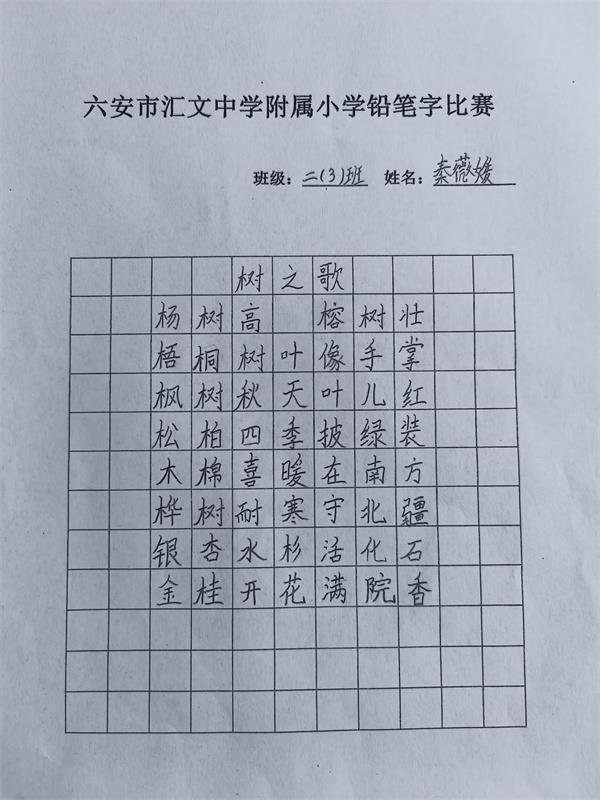 六安市汇文中学附属小学铅笔字比赛
班级：二(3)班 姓名：秦薇媛
树之歌
杨树高 榕树壮
梧桐树叶像手掌
枫树秋天叶儿红
松柏四季披绿装
木棉喜暖在南方
桦树耐寒守北疆
银杏水杉活化石
金桂开花满院香